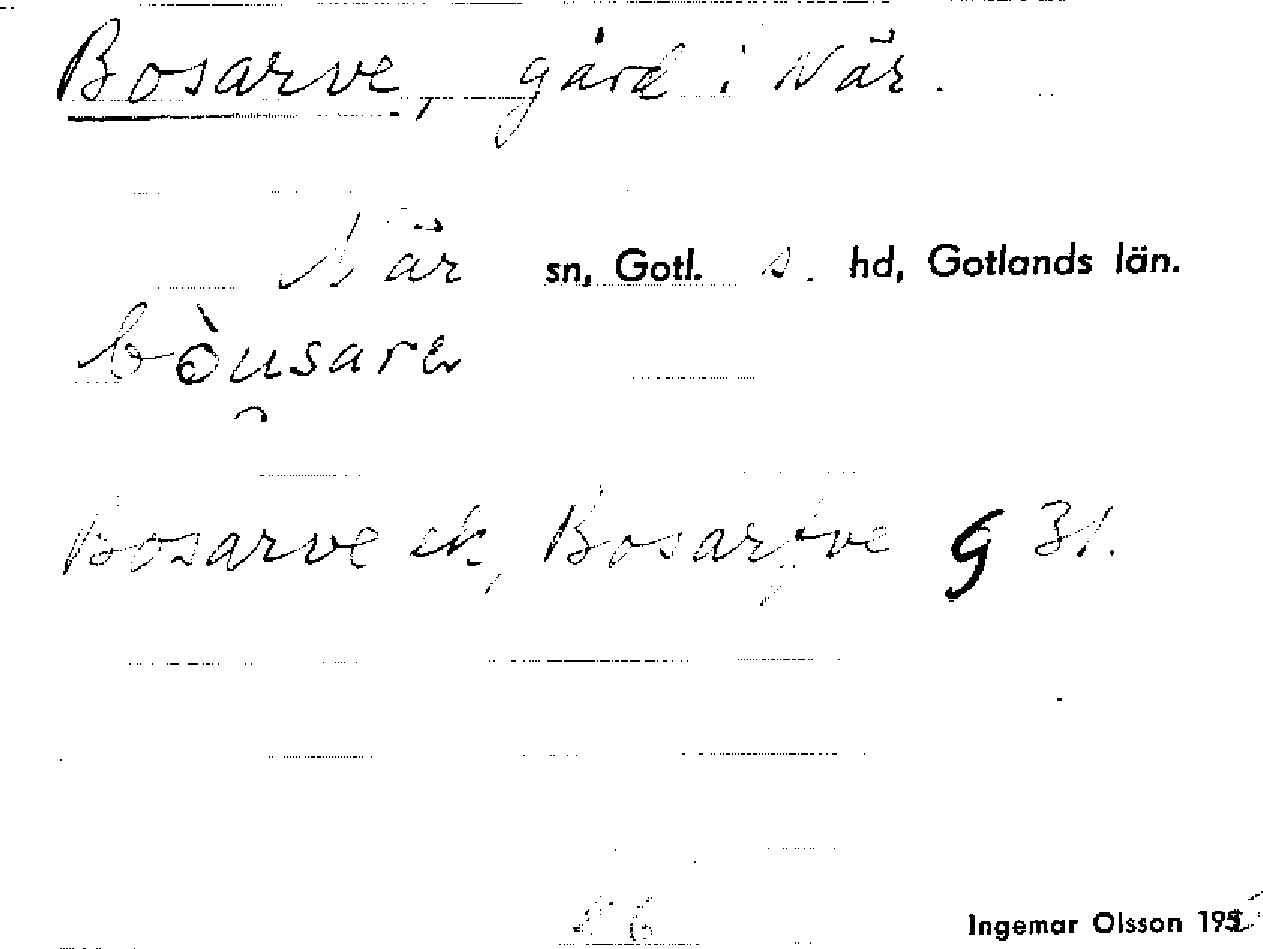 Bosarve, gård i När.
När sn, Gotl. s. hd, Gotlands län.
bòu̯sarǝ
Bosarve ek, Bosarfve G 31.
Ingemar Olsson 195